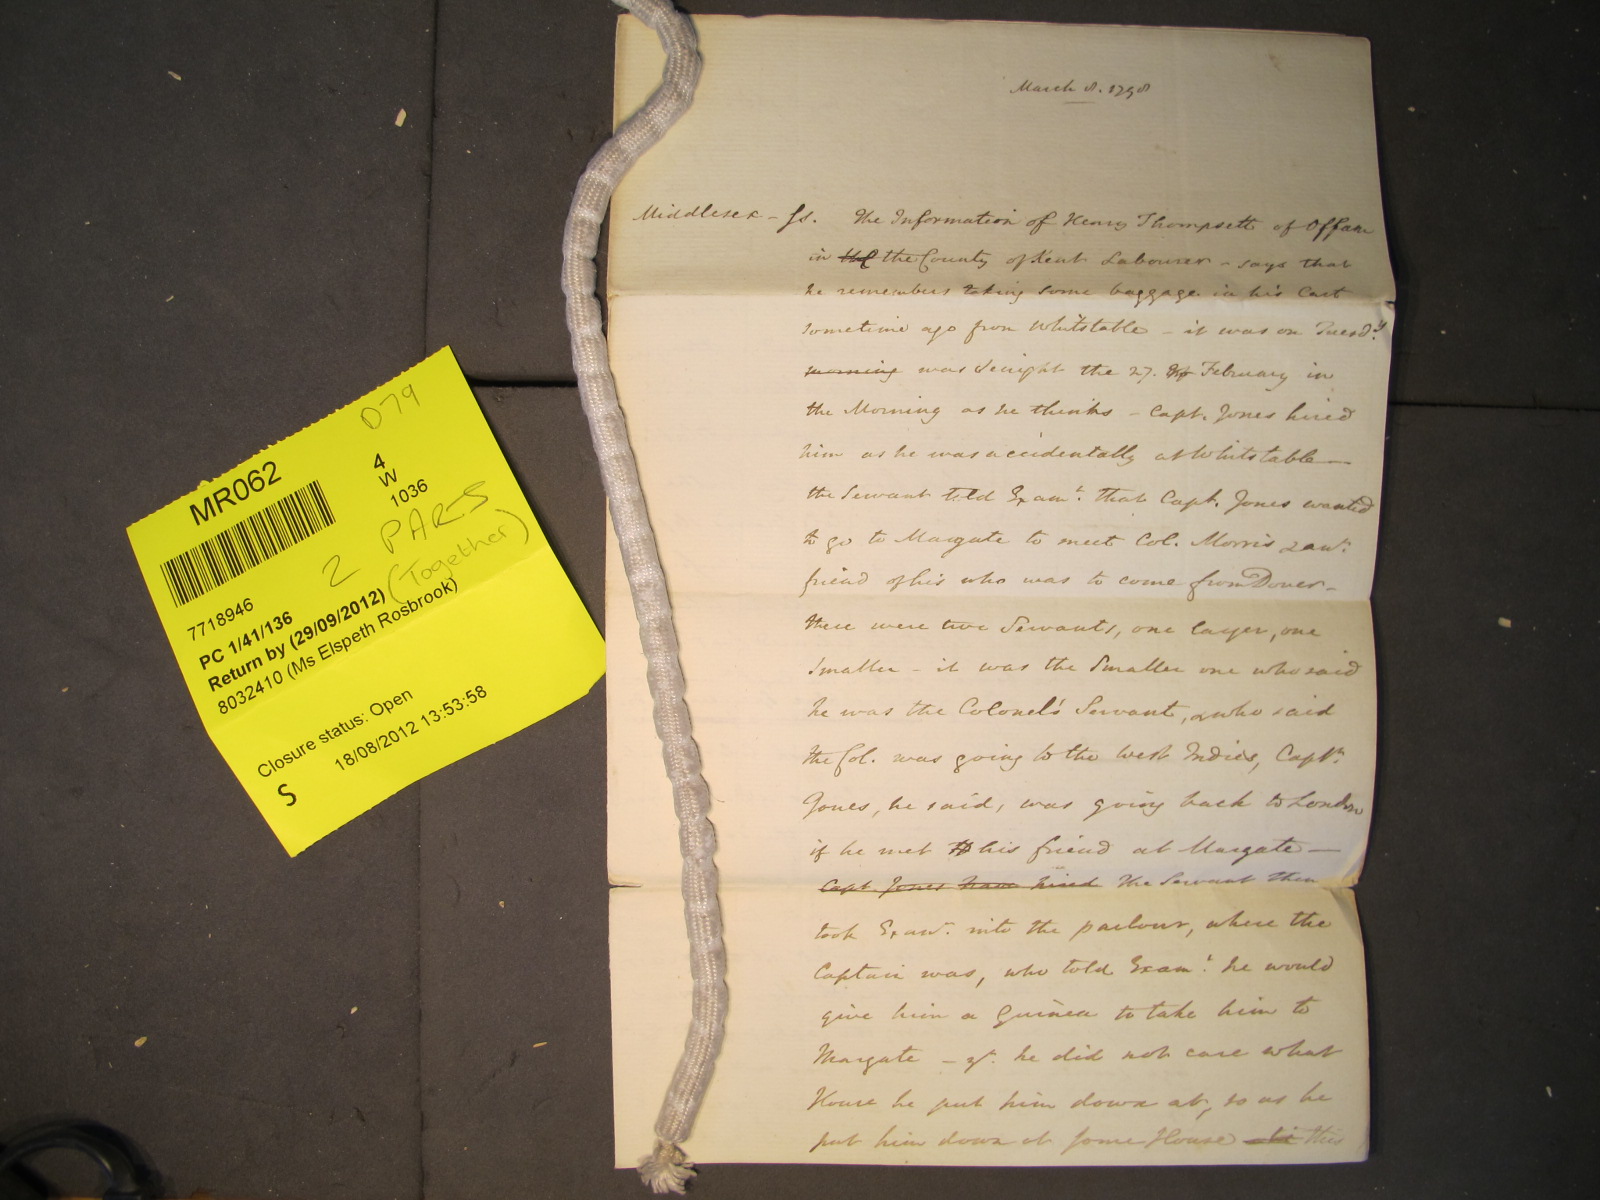 March 8. 1798
Middlesex - ss. The Information of Henry Thompsett of Offam
in the the County of Kent Labourer - says that
he remembers taking some baggage in his Cart
sometime ago from Whitstable - it was on Tuesdy.
morning was Senight the 27. February in
the Morning as he thinks - Capt. Jones hired
him as he was accidentally at Whitstable —
the Servant told Examt. that Capt. Jones wanted
to go to Margate to meet Col. Morris & anr.
friend of his who was to come from Dover -
there were two Servants, one larger, one
smaller - it was the smaller one who said
he was the Colonel's Servant, & who said
the Col. was going to the West Indies, Captn.
Jones, he said, was going back to London
if he met his friend at Margate —
Capt. Jones have hired the Servant then
took Examt. into the parlour, where the
Captain was, who told Examt. he would
give him a Guinea to take him to
Margate - yt. he did not care what
House he put him down at, so as he
put him down at some House this
MR062
D79
4
W
1036
2 PARS
(Together)
7718946
PC 1/41/136
Return by (29/09/2012)
8032410 (Ms Elspeth Rosbrook)
Closure status: Open
S 18/08/2012 13:53:58